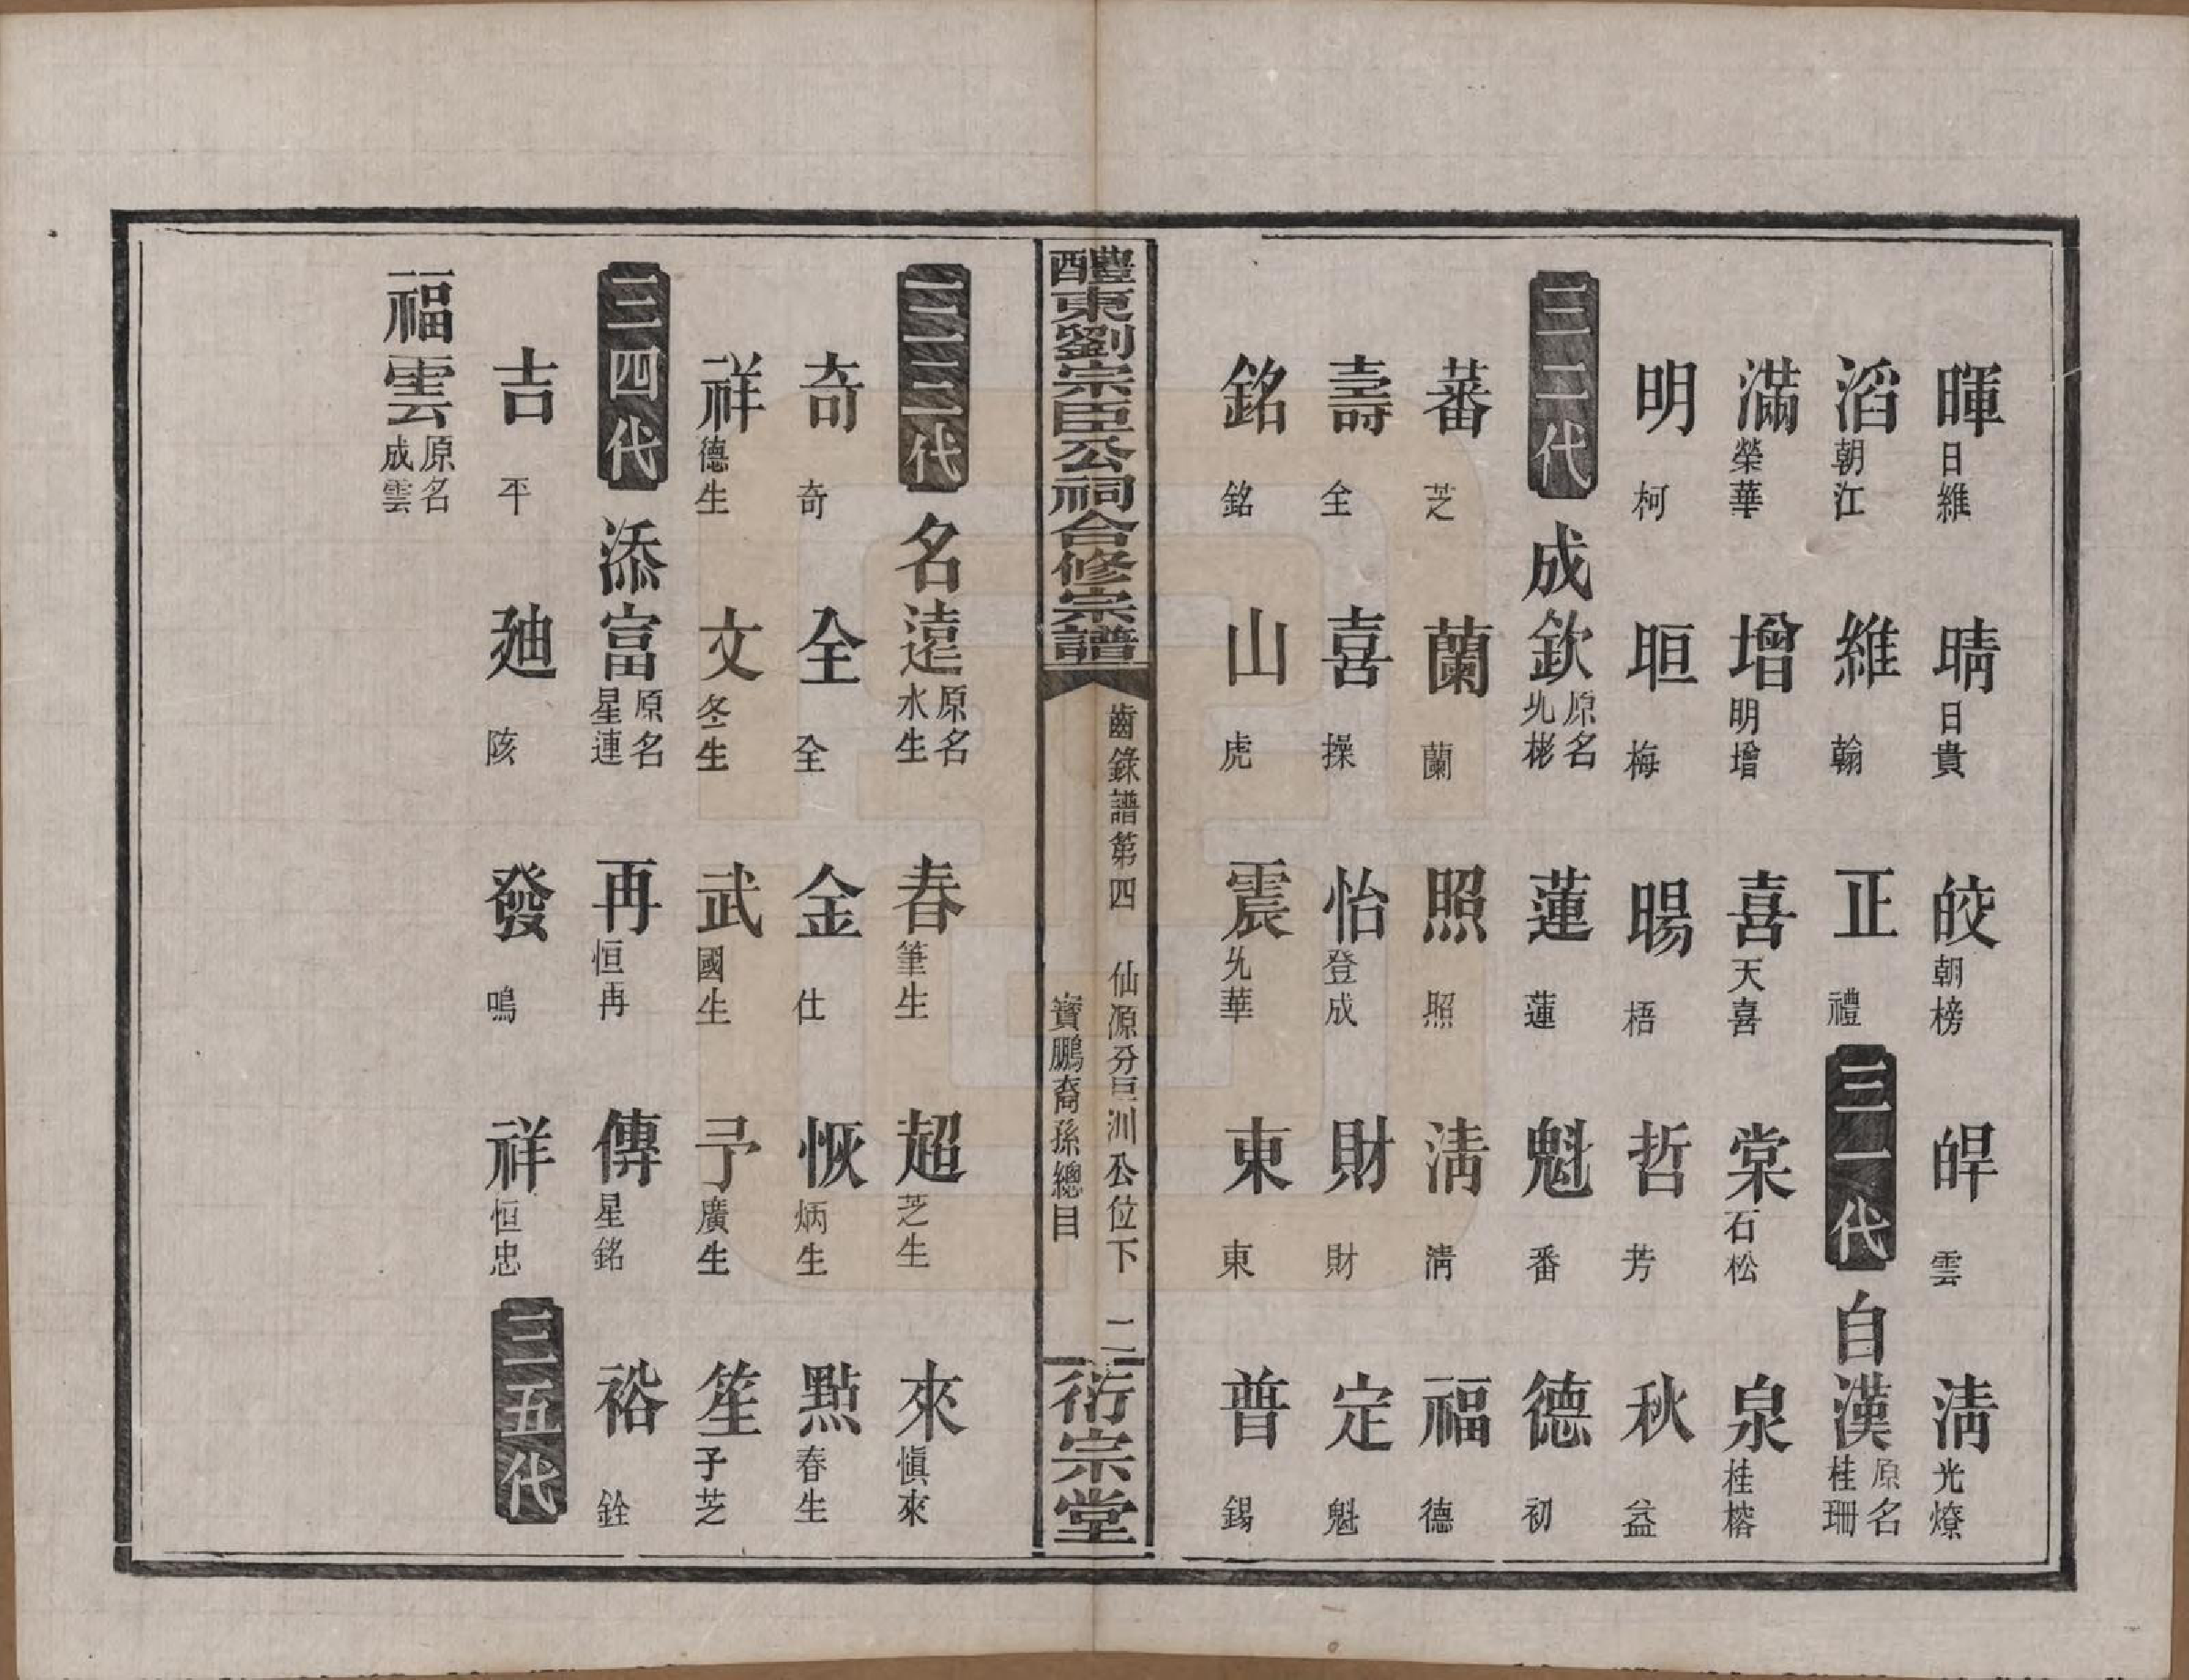 暉日維 晴日貴 皎朝榜 皡雲 淸光燎
滔朝江 維翰 正禮 三一代 自漢原名桂珊
滿榮華 增明增 喜天喜 棠石松 泉桂榕
明柯 晅梅 暘梧 哲芳 秋益
三二代 成欽原名兆彬 蓮蓮 魁番 德初
蕃芝 蘭蘭 照照 淸淸 福德
壽全 喜操 怡登成 財財 定魁
銘銘 山虎 震兆華 東東 普錫
醴東劉宗臣公祠合修宗譜 齒錄譜第四 仙源分巨洲公位下 二 衍宗堂
寶鵬裔孫總目
三三代 名遠原名水生 春筆生 超芝生 來愼來
奇奇 全全 金仕 恢炳生 點春生
祥德生 文冬生 武國生 予廣生 笙予芝
三四代 添富原名星連 再恒再 傳星銘 裕銓
吉平 廸陔 發鳴 祥恒忠 三五代
福雲原名成雲